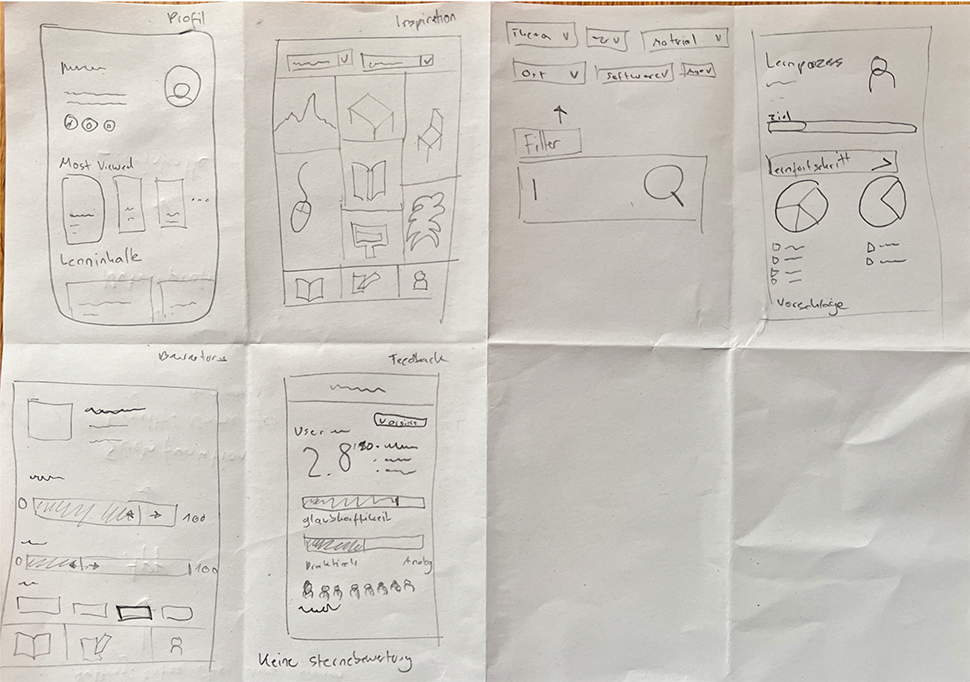 Profil
Most Viewed
Lerninhalte
Inspiration
Thema
Material
Ort
Software
Filter
Lernprozess
Ziel
Lernfortschritt >
Vorschläge
0
100
0
100
Feedback
User
2.8
glaubhaftigkeit
Praktisch
Keine Sternebewertung